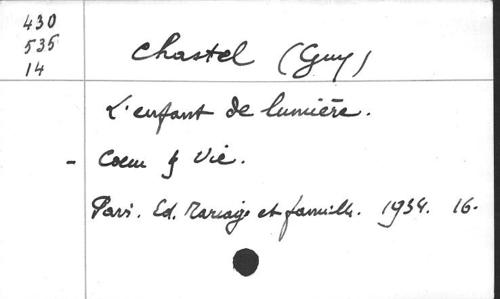 430
535
14
Chastel (Guy)
L'enfant de lumière.
- Coeur & Vie.
Paris. Ed. Mariage et famille. 1934. 16.